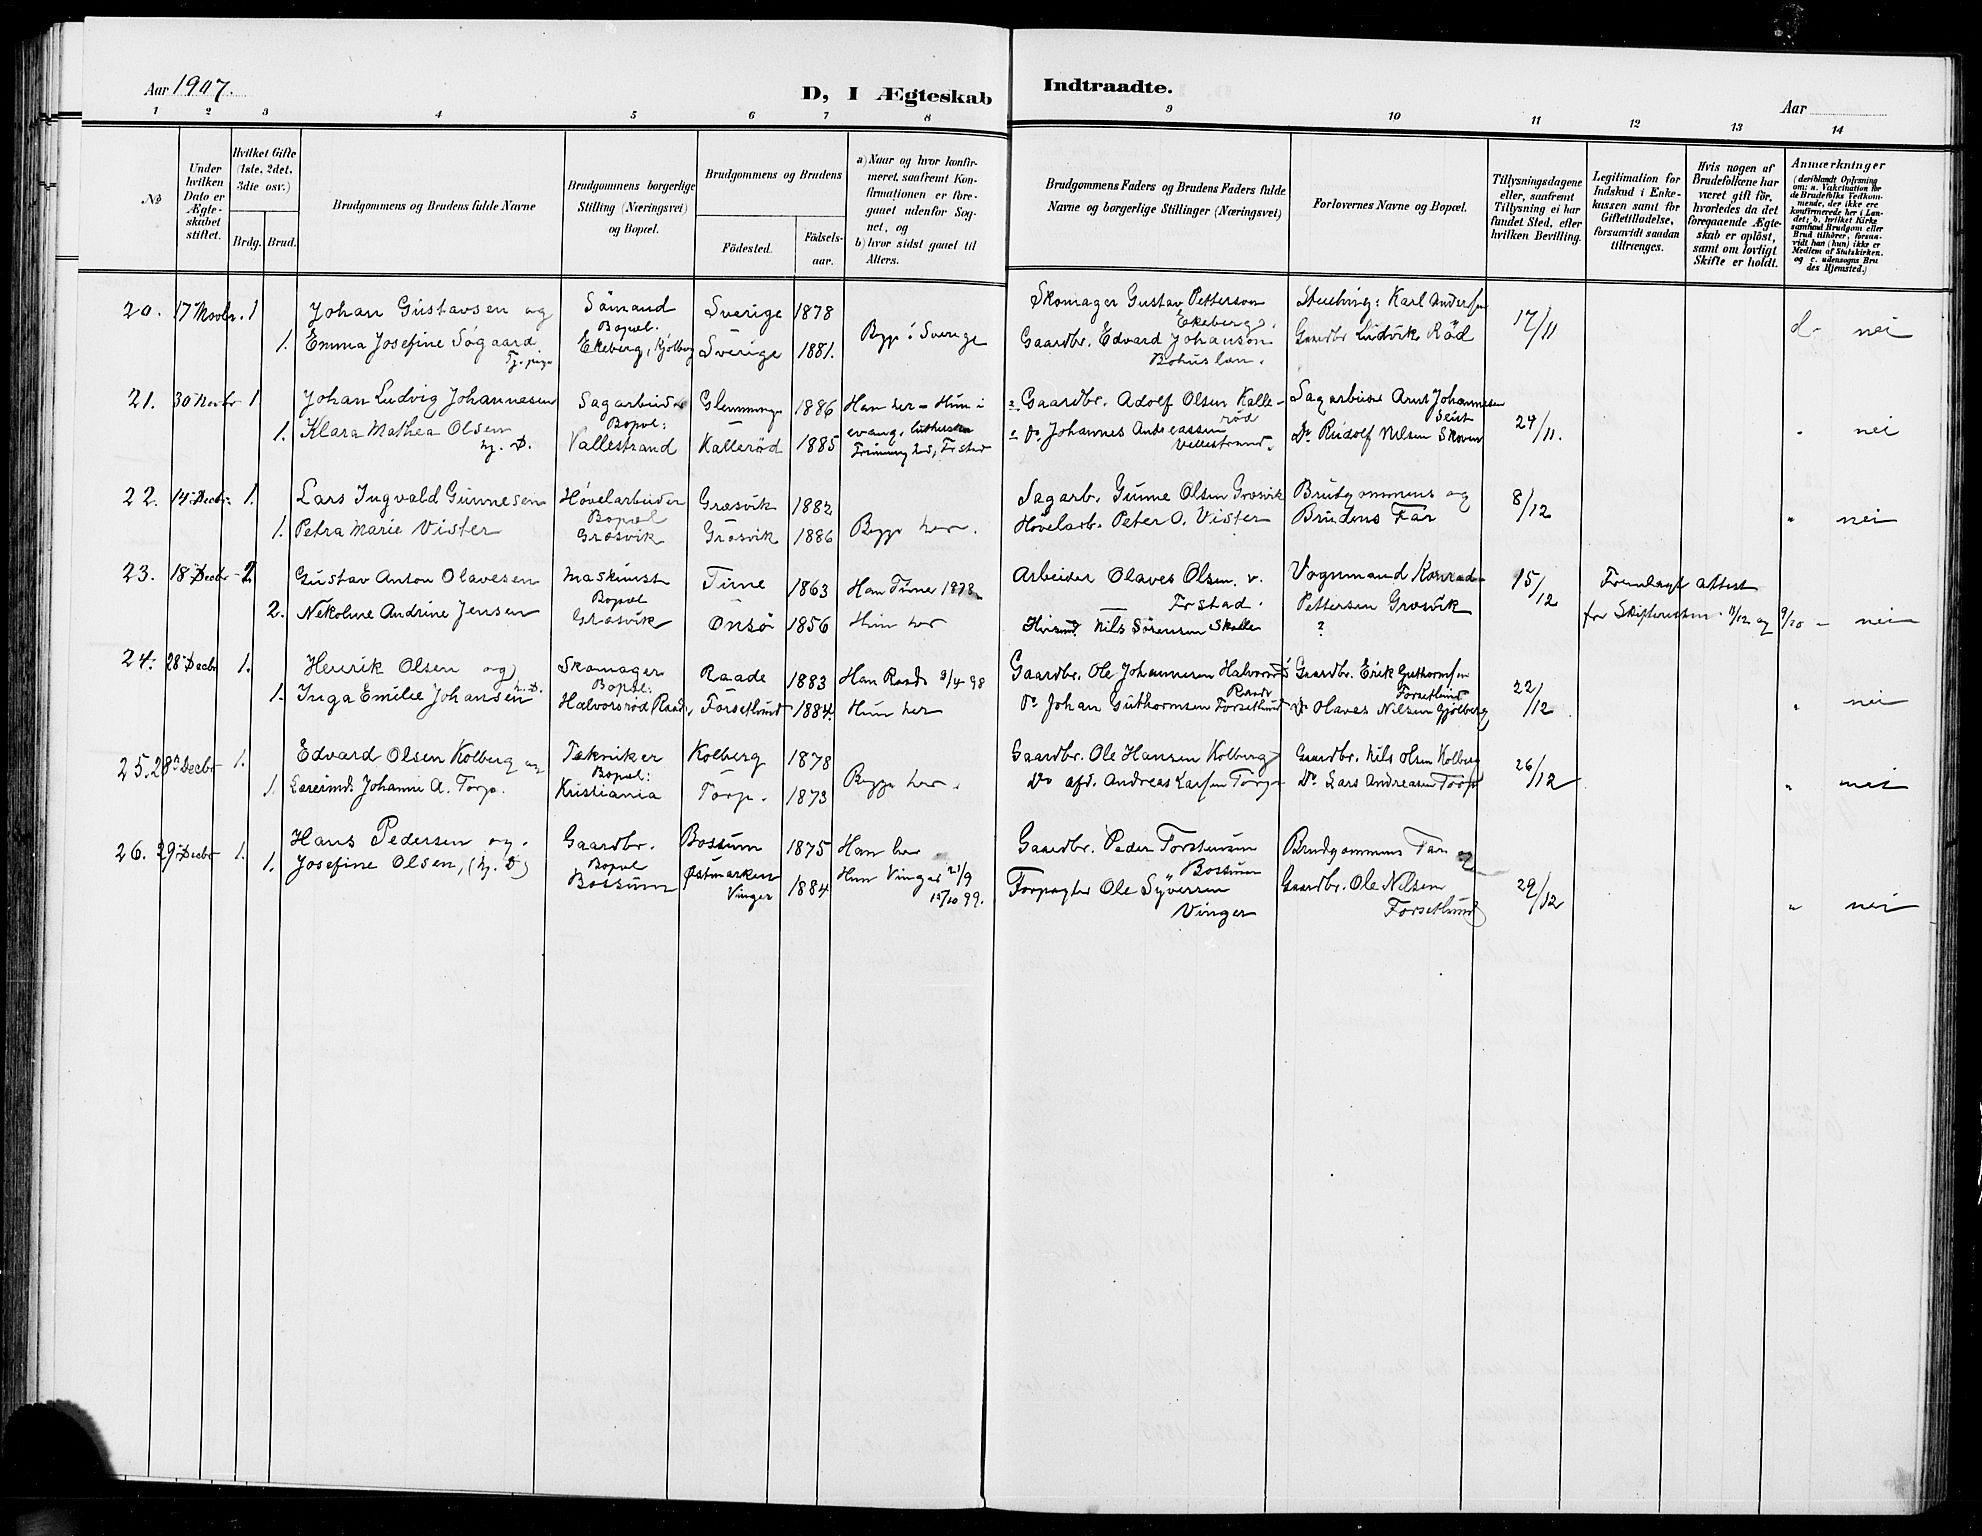 Aar 1907.
D, I Ægteskab Indtraadte.
Aar
1 2 3 4 5 6 7 8 9 10 11 12 13 14
No
Under hvilken Dato er Ægteskabet stiftet.
Hvilket Gifte (1ste, 2det, 3die osv.)
Brdg. Brud.
Brudgommens og Brudens fulde Navne
Brudgommens borgerlige Stilling (Næringsvei) og Bopæl.
Brudgommens og Brudens
Födested.
Födselsaar.
a) Naar og hvor konfirmeret, saafremt Konfirmationen er foregaaet udenfor Sognet, og
b) hvor sidst gaaet til Alters.
Brudgommens Faders og Brudens Faders fulde Navne og borgerlige Stillinger (Næringsvei)
Forlovernes Navne og Bopæl.
Tillysningsdagene eller, saafremt Tillysning ei har fundet Sted, efter hvilken Bevilling.
Legitimation for Indskud i Enkekassen samt for Giftetilladelse, forsaavidt saadan tiltrænges.
Hvis nogen af Brudefolkene har været gift för, hvorledes da det foregaaende Ægteskab er oplöst, samt om lovligt Skifte er holdt.
Anmærkninger
(deriblandt Oplysning om: a. Vakcination for de Brudefolks Vedkommende, der ikke ere konfirmerede her i Landet; b. hvilket Kirkesamfund Brudgom eller Brud tilhörer, forsaavidt han (hun) ikke er Medlem af Statskirken, og c. udensogns Brudes Hjemsted.)
20. 17 Novbr. 1 Johan Gustavsen og Sömand Sverige 1878 Skomager Gustav Petterson Karl Andersen 17/11
Bopæl: Begge i Sverige Ekeberg. d- nei
1. Emma Josefine Sögaard Ekeberg, Kjølberg Sverige 1881. Gaardbr. Edvard Johanson Gaardbr Ludvik Röd
Tj. pige Bohuslen.
21. 30 Novbr 1 Johan Ludvig Johannesen Sagarbeider Glemminge 1886 Han her - Hun i Gaardbr. Adolf Olsen Kallerød Sagarbeider Arnt Johannesen
Bopæl: evang. luthersk 24/11. " nei
1. Klara Mathea Olsen Vallestrand Kallerød 1885 Frimenighed, Frstad Do Johannes Andreassen Vallestrand. Do Rudolf Nilsen
hj. D.
22. 14 Decbr 1. Lars Ingvald Gunnesen Høvelarbeider Græsvik 1882 Sagarb. Gunne Olsen Græsvik Brudgommens og 8/12
Bopæl Begge her. " nei
1. Petra Marie Vister Græsvik Græsvik 1886 Høvelarb. Peter O. Vister Brudens Far
23. 18 Decbr 2. Gustav Anton Olavesen Maskinist Tune 1863 Han Tune 1878 Arbeider Olaves Olsen v. Vognmand Konrad 15/12 Fremlagt attest
Bopæl Frstad. Pettersen Græsvik
2. Nekoline Andrine Jensen Græsvik Onsö 1856 Hun her Nils Sörensen Skalle ? for Skifteretten 11/12 og 9/10 - nei
24. 28 Decbr 1. Henrik Olsen og Skomager Raade 1883 Han Raade 3/4 98 Gaardbr. Ole Johannesen Halvorsrød Gaardbr. Erik Guthormsen
Bopæl: Raade Forsetlund 22/12 " nei
1. Inga Emilie Johansen h. D. Halvorsrød Raade, Forsetlund 1884. Hun her Do Johan Guthormsen Forsetlund Do Olaves Nilsen Gjølberg
25. 28 Decbr 1. Edvard Olsen Kolberg og Tekniker Kolberg 1878 Gaardbr. Ole Hansen Kolberg Gaardbr. Nils Olsen Kolberg 26/12
Bopæl: Begge her. " nei
1. Lærerinde Johanne A. Torp. Kristiania Torp. 1873 Do afd. Andreas Larsen Torp Do Lars Andreasen Torp
26. 29 Decbr 1. Hans Pedersen og Gaardbr. Bossum 1875 Han her Gaardbr. Peder Forstensen Brudgommens Far og
Bopæl Bossum 29/12
1. Josefine Olsen, (hj. D) Bossum Østmarken Vinger 1884 Hun Vinger 15/10 99. Forpagter Ole Syversen Vinger Gaardbr. Ole Nilsen Forsetlund " nei